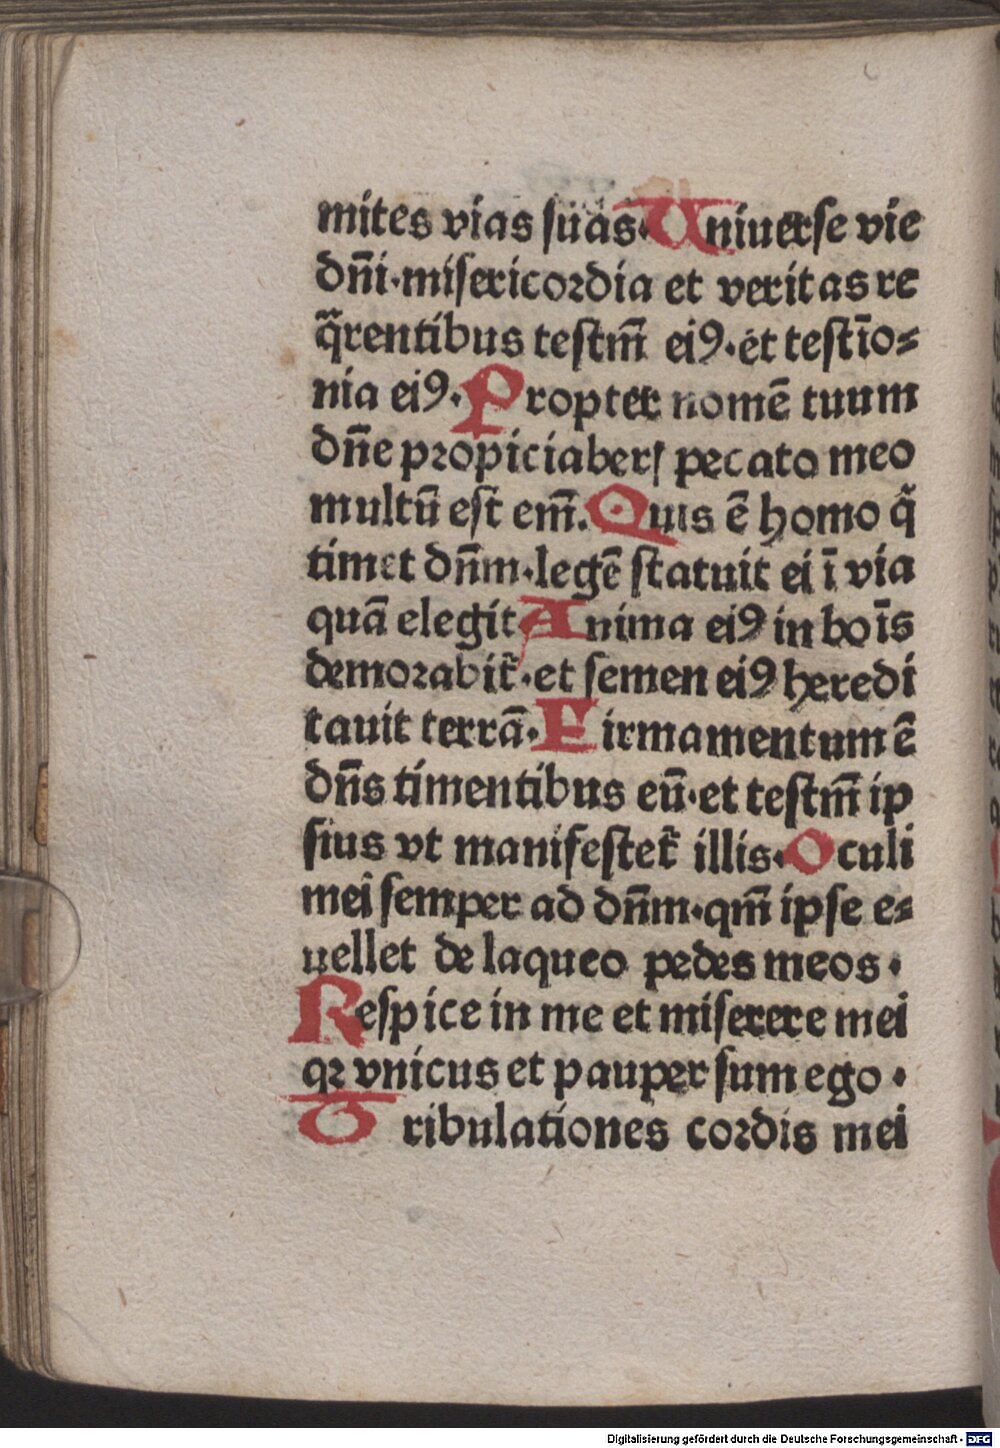 mites vias suas. Uniuerse vie
dñi·misericordia et veritas re
q̃rentibus testm̃ eiꝰ·et testīo⸗
nia eiꝰ. Propter nomē tuum
dñe propiciaberſ pecato meo
multū est em̃. Quis ē homo q̃
timet dñm·legē statuit ei ī via
quā elegit Anima eiꝰ in boīs
demorabit̃·et semen eiꝰ heredi
tauit terrā· Firmamentum ē
dñs timentibus eū·et testm̃ ip
sius vt manifestet̃ illis· Oculi
mei semper ad dñm·qm̃ ipse e⸗
uellet de laqueo pedes meos·
Respice in me et miserere mei
qꝛ vnicus et pauper sum ego·
Tribulationes cordis mei
Digitalisierung gefördert durch die Deutsche Forschungsgemeinschaft - DFG